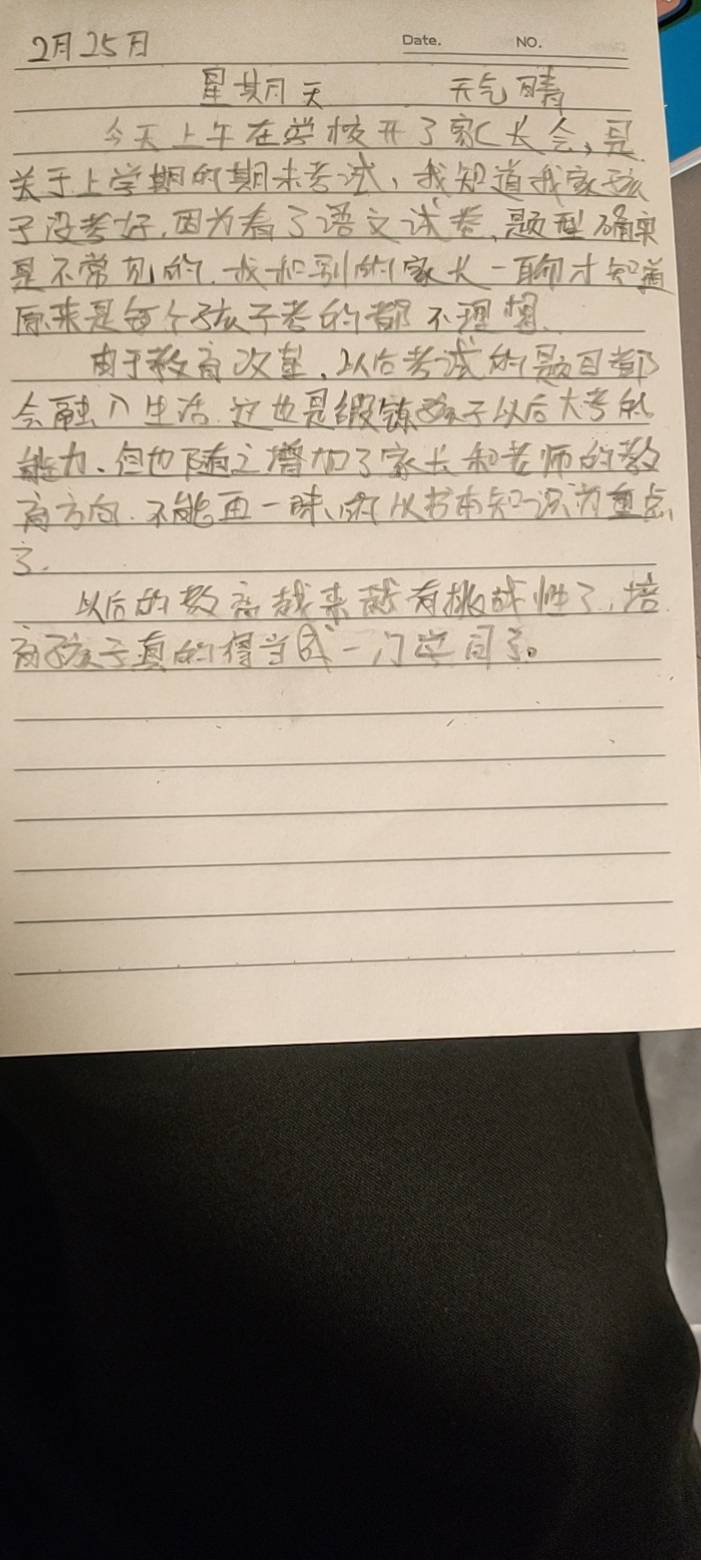 Date. NO.
2月25日
星期天 天气晴
今天上午在学校开了家长会,是
关于上学期的期末考试,我知道我家孩
子没考好,因为看了语文试卷,题型确实
是不常见的.我和别的家长一聊才知道
原来是每个孩子考的都不理想.
由于教育改革,以后考试的题目都
会融入生活.这也是锻炼孩子以后大考的
能力.但也随之增加了家长和老师的教
育方向.不能再一味的以书本知识为重点
了.
以后的教育越来越有挑战性了,培
育孩子真的得当成一门学问了。